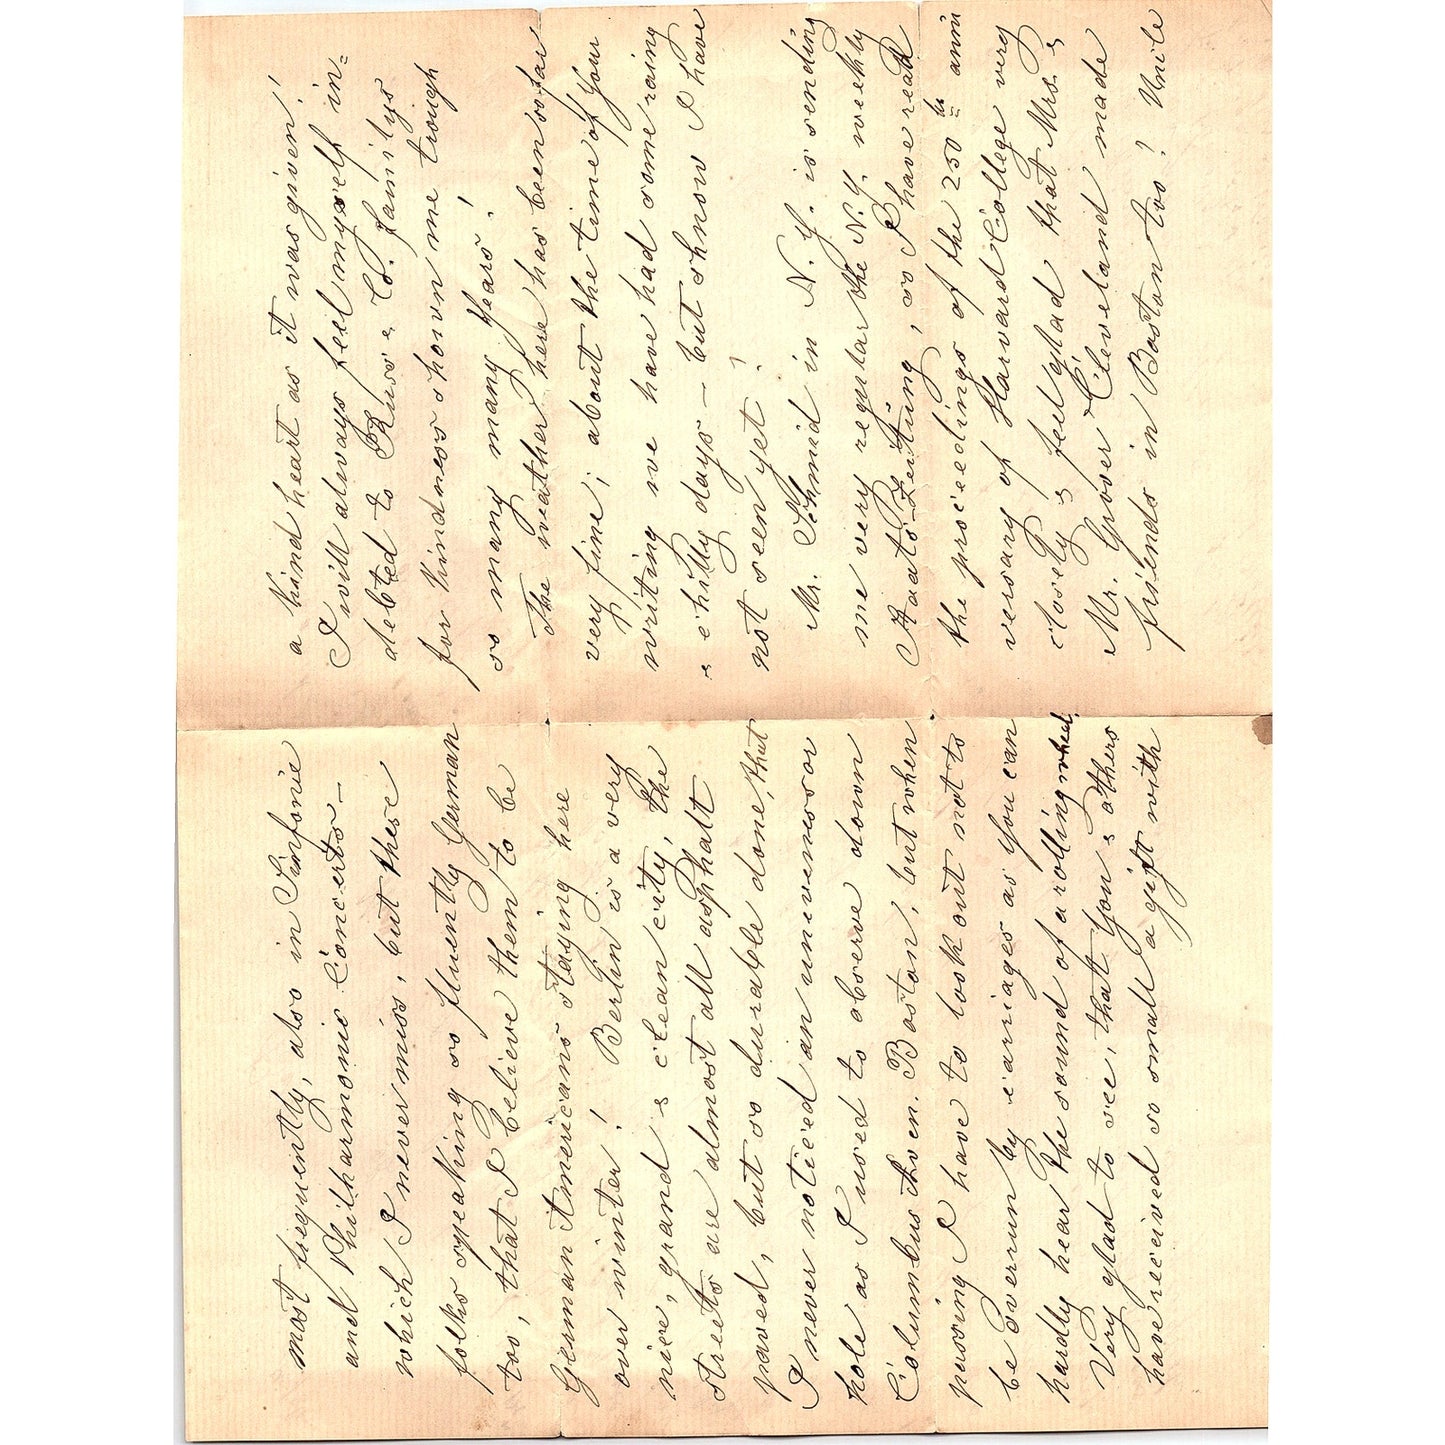 most frequently, also in Sinfonie
and Philharmonic Concerts —
which I never miss, but these
folks speaking so fluently German
too, that I believe them to be
German Americans staying here
over winter! Berlin is a very
nice, grand & clean city, the
streets are almost all asphalt
paved, but so durable done, that
I never noticed an unevenss or
hole as I used to observe down
Columbus Aven. Boston, but when
passing I have to look out not to
be overrun by carriages as you can
hardly hear the sound of a rolling wheel.
Very glad to see, that you & others
have received so small a gift with
a kind heart as it was given!
I will always feel myself in=
debted to Russ & Co. familys
for kindness shown me trough
so many many years!
The weather here has been so far
very fine; about the time of your
writing we have had some rainy
& chilly days — but shnow I have
not seen yet!
Mr. Schmid in N.Y. is sending
me very regular the N.Y. weekly
Staats-Zeitung, so I have read
the proceedings of the 250th anni
versary of Harvard College very
closely & feel glad that Mrs. &
Mr. Grover Cleveland made
friends in Boston too? Unile